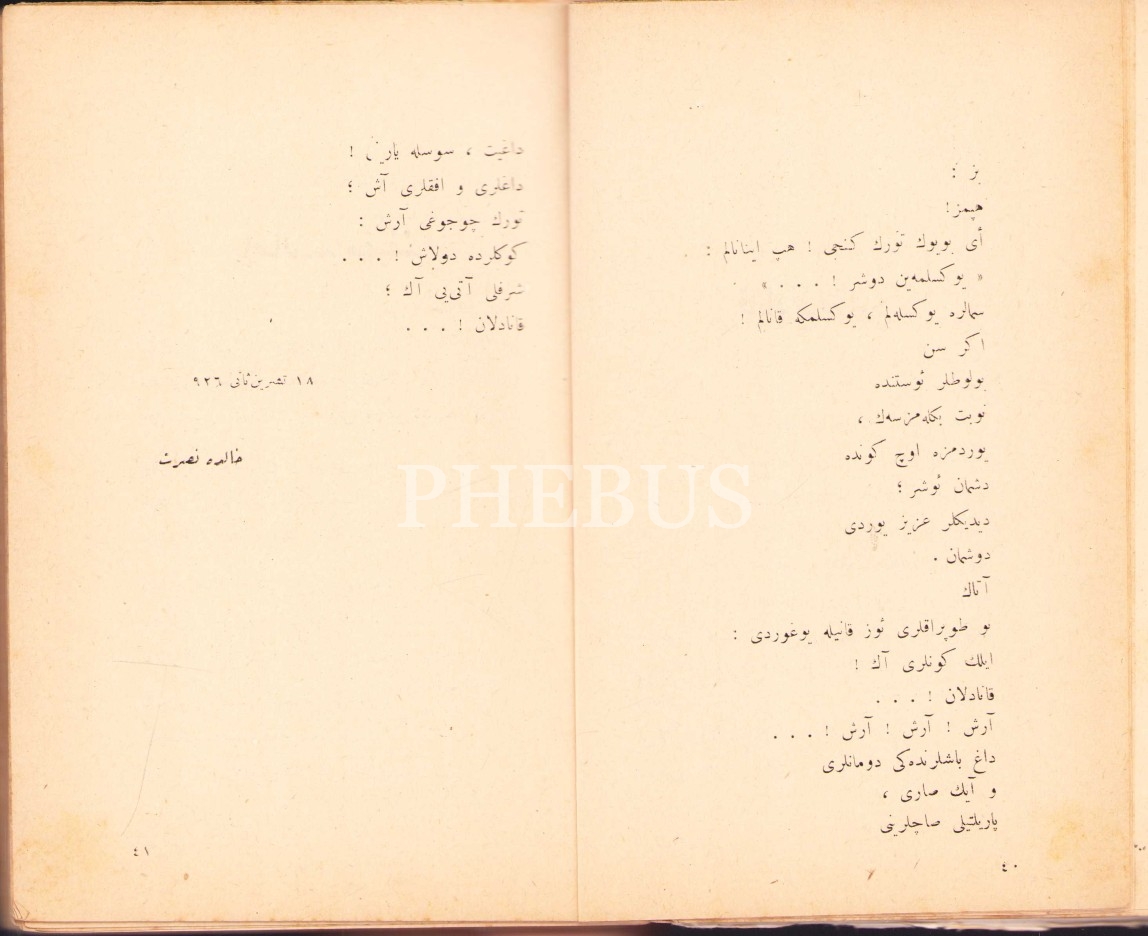 بز :
هپمز !
أی بویوك تورك كنجی ! هپ اینانالم :
« یوكسلمه‌ین دوشر ! . . . »
سمالره یوكسله‌لم ، یوكسلمكه قانالم !
اكر سن
بولوطلر ئوستنده
نوبت بكله‌مزسه‌ك ،
یوردمزه اوچ كونده
دشمان ئوشر ؛
دیدیكلر عزیز یوردی
دوشمان .
آتاك
بو طوپراقلری ئوز قانیله یوغوردی :
ایلك كونلری آك !
قانادلان ! . . .
آرش ! آرش ! آرش ! . . .
داغ باشلرنده‌كی دومانلری
و آیك صاری ،
پاریلتیلی صاچلرینی
٤٠
داغیت ، سوسله یارین !
داغلری و افقلری آش ؛
تورك چوجوغی آرش :
كوكلرده دولاش ! . . .
شرفلی آتی‌یی آك ؛
قانادلان ! . . .
١٨ تشرین ثانی ٩٢٦
خالده نصرت
٤١
PHEBUS